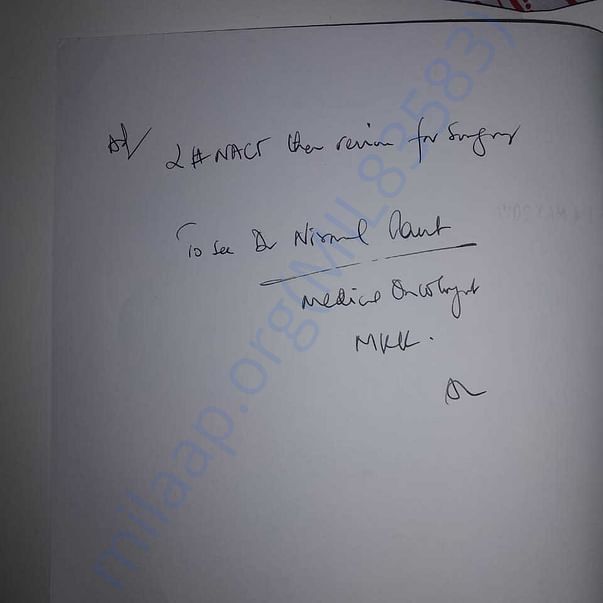 Ad/
2 # NACT then review for Surgery
To see Dr Nirmal Raut
Medical Oncologist
MKK.
milaap.org(MIL83583)